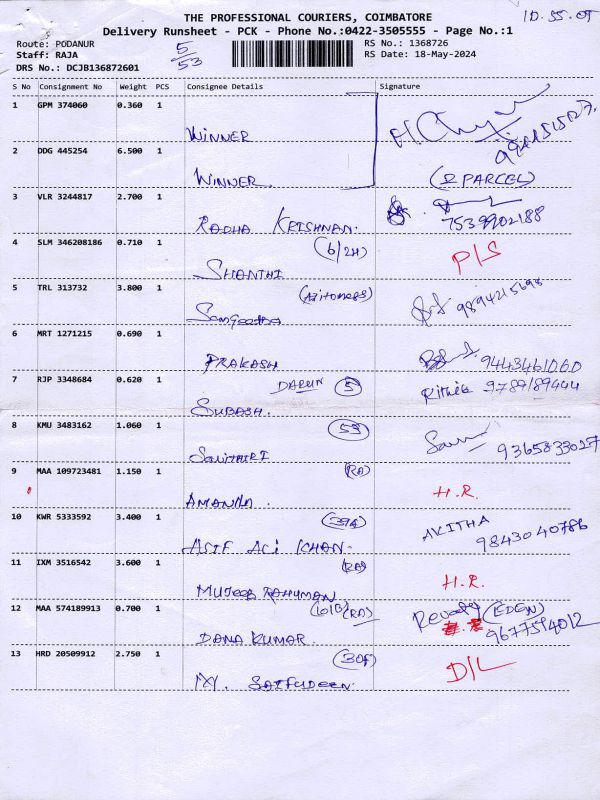 THE PROFESSIONAL COURIERS, COIMBATORE
10.55.05
Delivery Runsheet - PCK - Phone No.:0422-3505555 - Page No.:1
Route: PODANUR
5/53
RS No.: 1368726
Staff: RAJA
RS Date: 18-May-2024
DRS No.: DCJB136872601
S No Consignment No Weight PCS Consignee Details Signature
1 GPM 374060 0.360 1
WINNER
2 DDG 445254 6.500 1
WINNER (2 PARCEL)
3 VLR 3244817 2.700 1
RADHA KRISHNAN. 7539902188
4 SLM 346208186 0.710 1 (6/2H)
SHANTHI P/S
5 TRL 313732 3.800 1
Sangeetha 9894215698
6 MRT 1271215 0.690 1
PRAKASH 9443461060
7 RJP 3348684 0.620 1 DARUN 5 9789189444
SUBASH.
8 KMU 3483162 1.060 1 53
9365833027
9 MAA 109723481 1.150 1 (RA)
H.R.
10 KWR 5333592 3.400 1 (39A) AKITHA
ASIF ALI KHAN. 9843040786
11 IXM 3516542 3.600 1 (RA)
MUJEEB RAHUMAN H.R.
12 MAA 574189913 0.700 1 (61B) (RA) Revathy (EDEN)
DANA KUMAR. 9677594012
13 HRD 20509912 2.750 1 (30F)
M. SAIFUDEEN. D/L